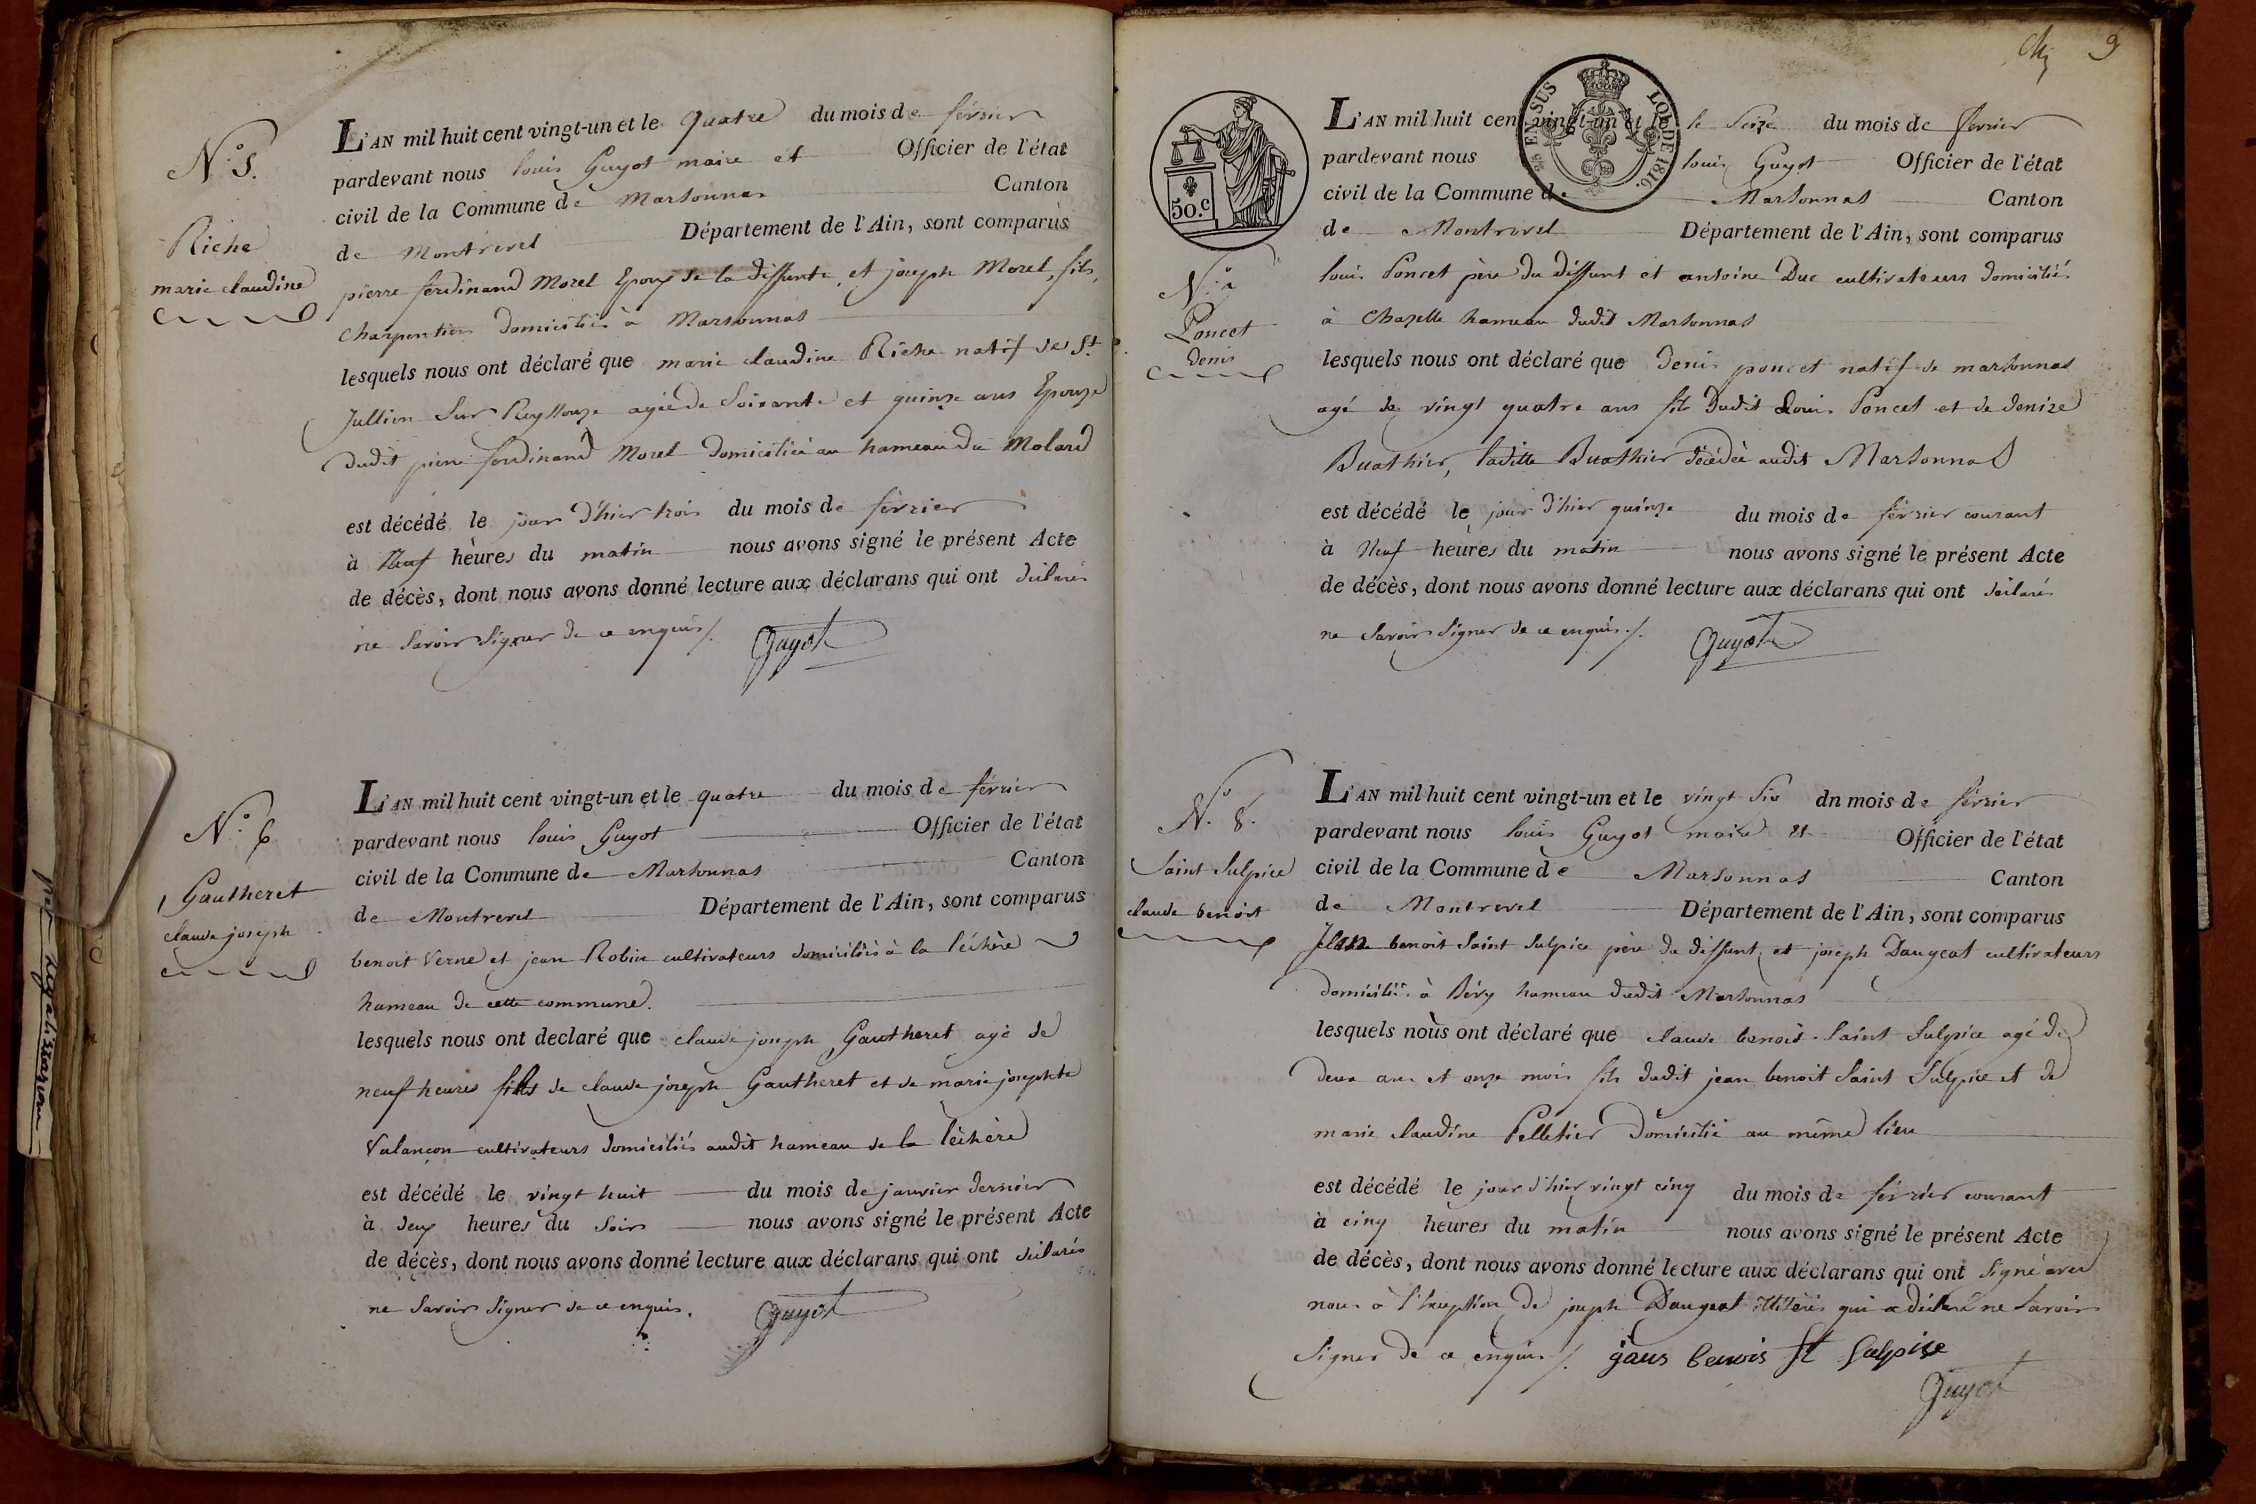 N.° 5.
Riche
marie claudine
L'AN mil huit cent vingt-un et le quatre du mois de février
pardevant nous louis Guyot maire et Officier de l'état
civil de la Commune de Marsonnas Canton
de Montrevel Département de l'Ain, sont comparus
pierre ferdinand Morel Epoux de la diffunte, et joseph Morel, fils,
Charpentiers domiciliés à Marsonnas
lesquels nous ont déclaré que marie claudine Riche natif de St
Jullien Sur Reyssouze agée de Soixante et quinze ans Epouze
dudit pierre ferdinand Morel domiciliée au hameau du Molard
est décédé le jour d'hier trois du mois de février
à Neuf hèures du matin nous avons signé le présent Acte
de décès, dont nous avons donné lecture aux déclarans qui ont déclarés
ne Savoir Signer de ce enquis ./. Guyot
N.° 6
Gautheret
claude joseph
L'AN mil huit cent vingt-un et le quatre du mois de février
pardevant nous louis Guyot Officier de l'état
civil de la Commune de Marsonnas Canton
de Montrevel Département de l'Ain, sont comparus
benoit Verne et jean Robin cultivateurs domiciliés à la léchère
hameau de cette commune.
lesquels nous ont declaré que claude joseph Gautheret agé de
neuf heures fils de claude joseph Gautheret et de marie josephte
Valançon cultivateurs domiciliés audit hameau de la léchère
est décédé le vingt huit du mois de janvier dernier
à deux heures du Soir nous avons signé le présent Acte
de décès, dont nous avons donné lecture aux déclarans qui ont déclarés
ne Savoir Signer de ce enquis. Guyot
9
50.c
EN SUS
LOI DE 1816.
N.° 7
Poncet
Denis
L'AN mil huit cent vingt-un et le le Seize du mois de février
pardevant nous louis Guyot Officier de l'état
civil de la Commune de Marsonnas Canton
de Montrevel Département de l'Ain, sont comparus
louis Poncet père du diffunt et antoine Duc cultivateurs domiciliés
à Chazelle hameau dudit Marsonnas
lesquels nous ont déclaré que Denis poncet natif de marsonnas
agé de vingt quatre ans fils dudit Louis Poncet et de denize
Buathier, ladite Buathier décédée audit Marsonnas
est décédé le jour d'hier quinze du mois de février courant
à Neuf heures du matin nous avons signé le présent Acte
de décès, dont nous avons donné lecture aux déclarans qui ont déclarés
ne Savoir Signer de ce enquis ./. Guyot
N.° 8.
Saint Sulpice
claude benoit
L'AN mil huit cent vingt-un et le vingt Six dn mois de février
pardevant nous louis Guyot maire et Officier de l'état
civil de la Commune de Marsonnas Canton
de Montrevel Département de l'Ain, sont comparus
Jean benoit Saint Sulpice père du diffunt, et joseph Daugeat cultivateurs
domiciliés à Bévy hameau dudit Marsonnas
lesquels nous ont déclaré que claude benoit Saint Sulpice agé de
deux ans et onze mois fils dudit jean benoit Saint Sulpice et de
marie claudine Pelletier domicilié au même lieu
est décédé le jour d'hier vingt cinq du mois de février courant
à cinq heures du matin nous avons signé le présent Acte
de décès, dont nous avons donné lecture aux déclarans qui ont Signé avec
nous à l'Exception de joseph Daugeat illiteré qui a déclaré ne Savoir
Signer de ce enquis ./. jaus benois st sulpise
Guyot